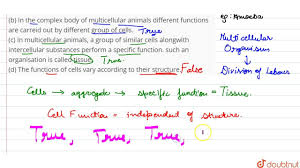 (b) In the complex body of multicellular animals different functions
are carried out by different group of cells. True
(c) In multicellular animals, a group of similar cells alongwith
intercellular substances perform a specific function. such
an organisation is called tissue. True.
(d) The functions of cells vary according to their structure. False
Cells → aggregate → specific function = Tissue.
Cell Function = independent of structure.
True, True, True,
eg: Amoeba
Multicellular
Organism
Division of Labour
doubtnut